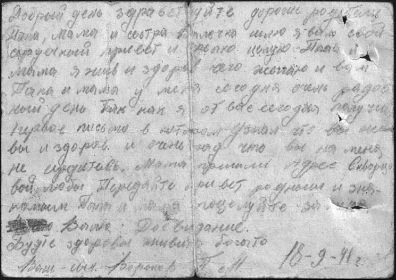 Добрый день здравствуйте дорогие родители
Папа, Мама и сестра шлю я вам свой
привет и целую Папа и
мама я жив и здоров чего желаю и вам
Папа и мама у меня сегодня очень радос
ный день Так как я от вас сегодня получил
первое письмо в котором узнал что вы жи
вы и здоров. и очень рад что вы на меня
не Мама пришли Адрес Скворцо
вой Любы Передайте привет родным и зна
комым Папа и мама поцелуйте за
Валю: Досвидание.
Будте здоровы живите богато
Ваш сын. Воронов 18-9-41 г.